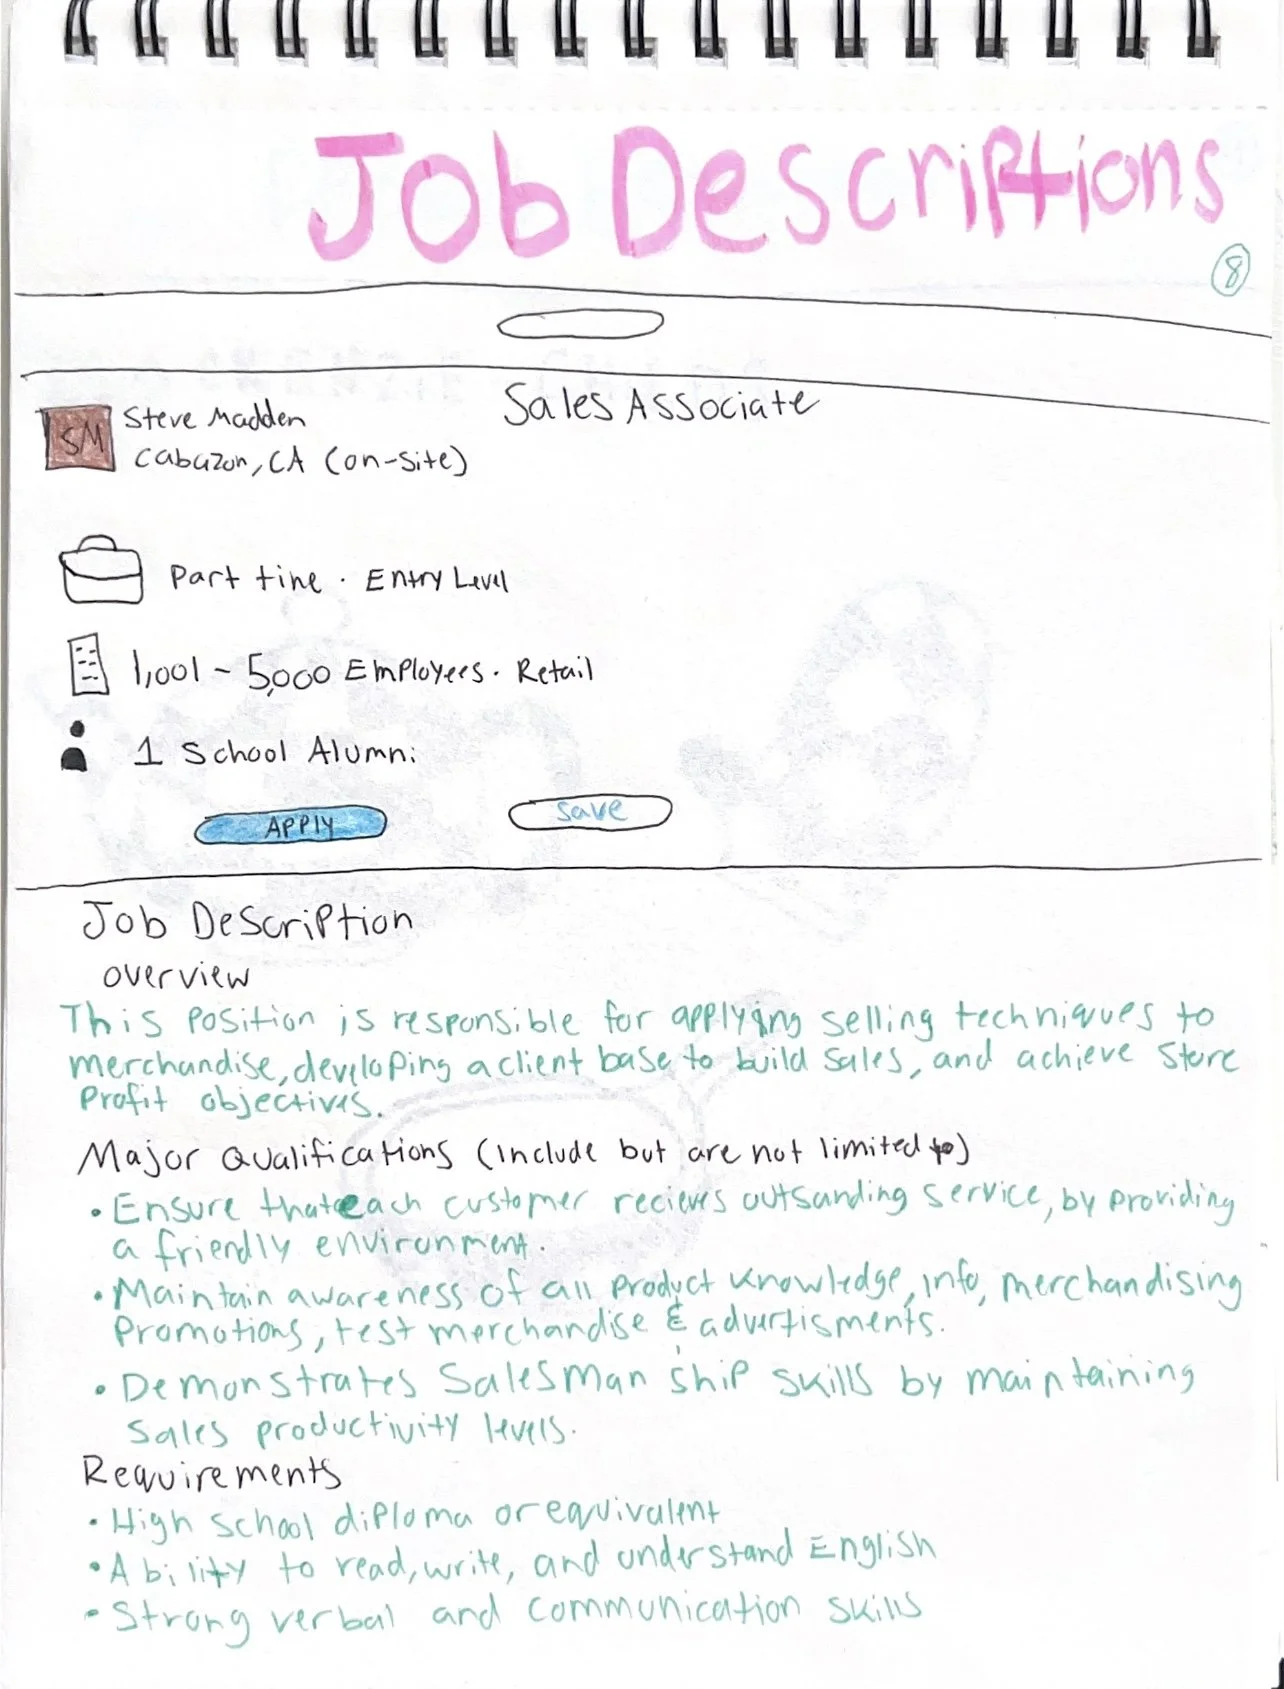 Job Descriptions
8
Sales Associate
SM
Steve Madden
Cabazon, CA (on-site)
Part time · Entry Level
1,001 - 5,000 Employees · Retail
1 School Alumni
APPLY
save
Job Description
overview
This position is responsible for applying selling techniques to
merchandise, developing a client base to build sales, and achieve store
profit objectives.
Major Qualifications (include but are not limited to)
• Ensure that each customer recieves outsanding service, by providing
a friendly environment.
• Maintain awareness of all product knowledge, info, merchandising
promotions, test merchandise & advertisments.
• Demonstrates Salesman ship skills by maintaining
sales productivity levels.
Requirements
• High school diploma or equivalent
• Ability to read, write, and understand English
• Strong verbal and communication skills